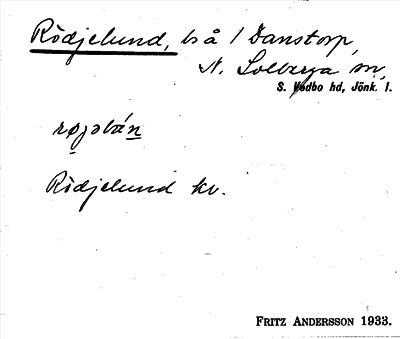 Rödjelund, ls å 1 Danstorp,
N. Solberga sn,
S. Vedbo hd, Jönk. l.
røjəlán
Rödjelund kv.
FRITZ ANDERSSON 1933.